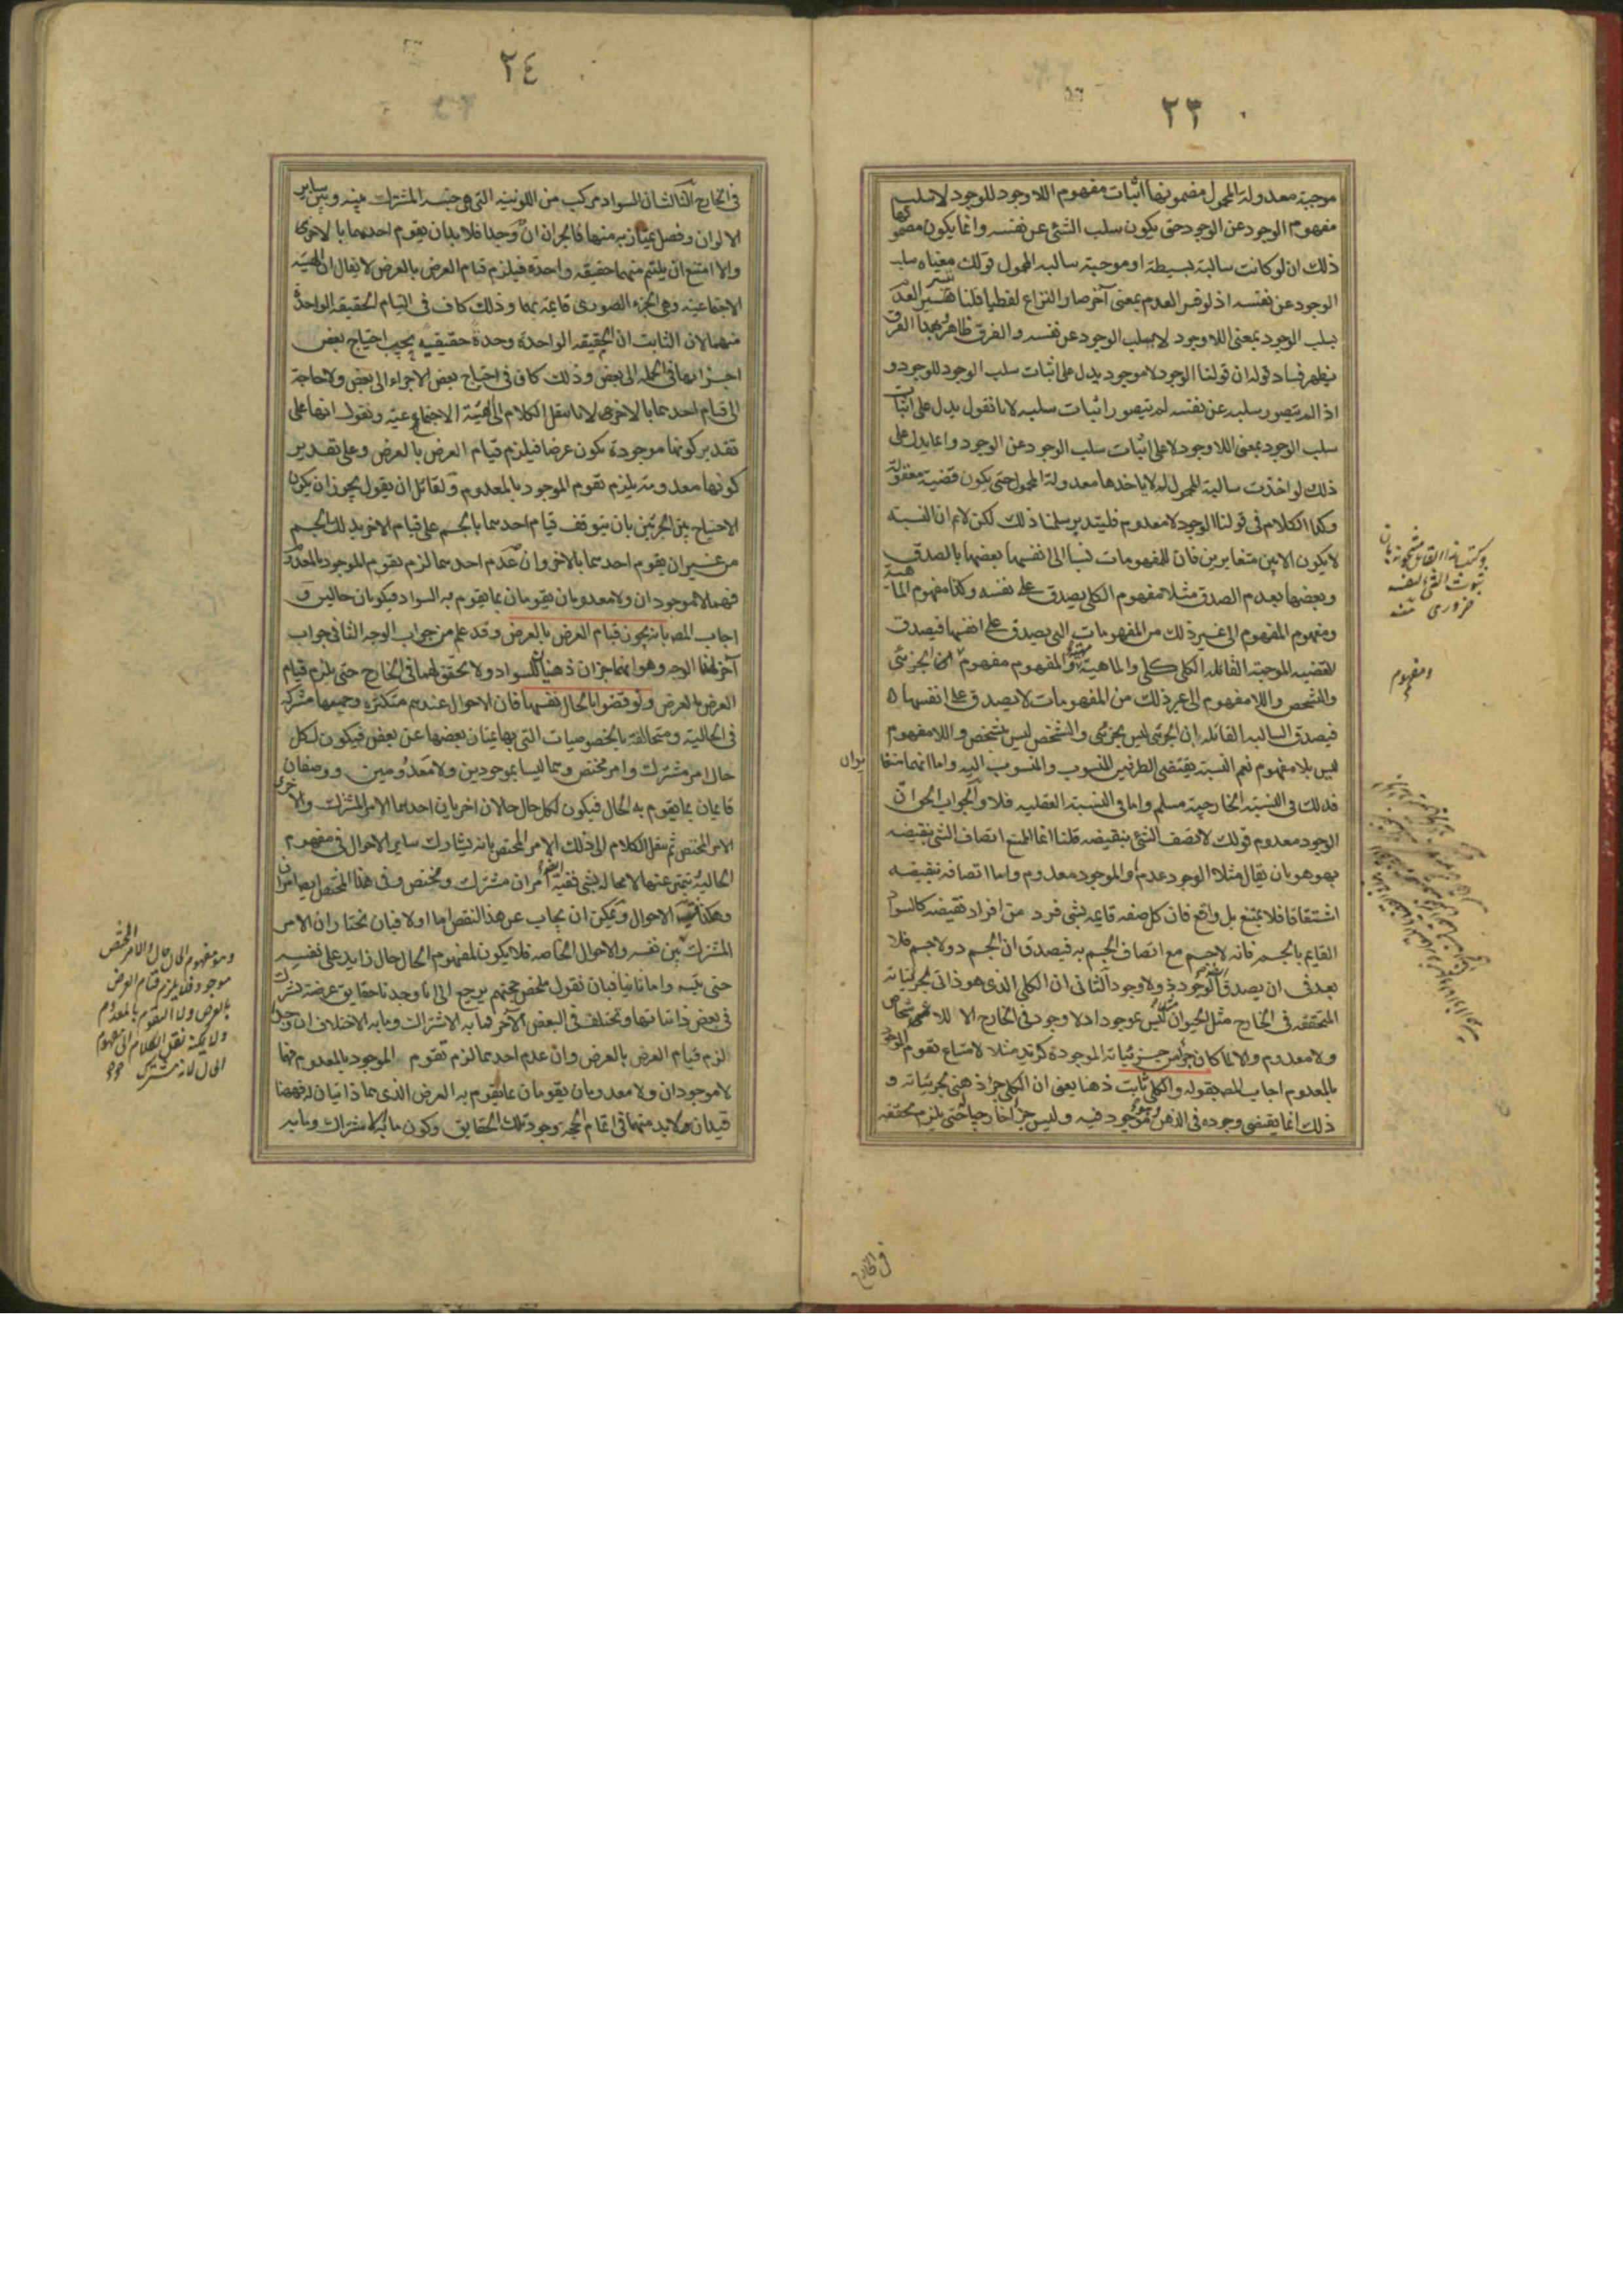 ٢٣
موجبة معدولة المحمول مضمونها اثبات مفهوم اللاوجود للوجود لا سلب
مفهوم الوجود عن الوجود حتى يكون سلب الشئ عن نفسه وانما يكون مضمونها
ذلك ان لو كانت سالبة بسيطة او موجبة سالبة المحمول قولك معناه سلب
الوجود عن نفسه اذ لو فسر العدم بمعنى آخر صار النزاع لفظيا قلنا تفسير العدم
بسلب الوجود بمعنى اللاوجود لا بسلب الوجود عن نفسه والفرق ظاهر وبهذا الفرق
يظهر فساد قوله ان قولنا الوجود لا موجود يدل على اثبات سلب الوجود للوجود و
اذا لم يتصور سلبه عن نفسه لم يتصور اثبات سلبه لانا نقول يدل على اثبات
سلب الوجود بمعنى اللاوجود لا على اثبات سلب الوجود عن الوجود وانما يدل على
ذلك لو اخذت سالبة المحمول لم لا ياخذها معدولة المحمول حتى يكون قضية معقولة
وكذا الكلام فى قولنا الوجود لا معدوم فليتدبر سلمنا ذلك لكن لانم ان النسبة
لا يكون الا بين متغايرين فان للمفهومات نسبا الى انفسها بعضها بالصدق
وبعضها بعدم الصدق مثلا مفهوم الكلى يصدق على نفسه وكذا مفهوم الماهية
ومفهوم المفهوم الى غير ذلك من المفهومات التى يصدق على انفسها فيصدق
القضيه الموجبة القائله الكلى كلى والماهية ماهية والمفهوم مفهوم الجزئى
والشخص واللامفهوم الى غير ذلك من المفهومات لا يصدق على انفسها
فيصدق السالبه القائله ان الجزئى ليس بجزئى والشخص ليس بشخص واللامفهوم
ليس بلامفهوم نعم النسبة يقتضى الطرفين المنسوب والمنسوب اليه واما انهما متغا
يران
فذلك فى النسبة الخارجية مسلم واما فى النسبة العقليه فلا والجواب الحق ان
الوجود معدوم قولك لا يتصف الشئ بنقيضه قلنا انما الممتنع اتصاف الشئ بنقيضه
بهو هو بان يقال مثلا الوجود عدم والموجود معدوم واما اتصافه بنقيضه
اشتقاقا فلا يمتنع بل واقع فان كل صفه قايمه بشئ فرد من افراد نقيضه كالسواد
القايم بالجسم فانه لا جسم مع اتصاف الجسم به فيصدق ان الجسم ذو لا جسم فلا
بعد فى ان يصدق الوجود ذو لا وجود الثانى ان الكلى الذى هو ذاتى لجزئياته
المتحققه فى الخارج مثل الحيوان ليس بموجود اذ لا وجود فى الخارج الا للاشخاص
ولا معدوم والا لما كان جزأ من جزئياته الموجودة كزيد مثلا لامتناع تقوم الموجود
بالمعدوم اجاب المصـ بقوله والكلى ثابت ذهنا يعنى ان الكلى جزأ ذهنى لجزئياته و
ذلك انما يقتضى وجوده فى الذهن وهو موجود فيه وليس جزأ خارجيا حتى يلزم تحققه
ومفهوم
فى الخارج
٢٤
فى الخارج الثالث ان السواد مركب من اللونيه التى هى جنسه المشترك بينه وبين ساير
الالوان وفصل يمتاز به منها فالجزان ان وجدا فلا بد ان يقوم احدهما بالاخرى
والا امتنع ان يلتئم منهما حقيقه واحدة فيلزم قيام العرض بالعرض لا يقال ان الهيئة
الاجتماعيه وهى الجزء الصورى قايمة بهما وذلك كاف فى التيام الحقيقه الواحدة
منهما لان الثابت ان الحقيقه الواحدة وحدة حقيقيه يجب احتياج بعض
اجزائها فى الجمله الى بعض وذلك كاف فى احتياج بعض الاجزاء الى بعض ولا حاجة
الى قيام احدهما بالاخرى لانا ننقل الكلام الى الهيئة الاجتماعية ونقول انها على
تقدير كونها موجودة يكون عرضا فيلزم قيام العرض بالعرض وعلى تقدير
كونها معدومة يلزم تقوم الموجود بالمعدوم ولقائل ان يقول يجوز ان يكون
الاحتياج بين الجزئين بان يتوقف قيام احدهما بالجسم على قيام الاخر بذلك الجسم
من غير ان يقوم احدهما بالاخر وان عدم احدهما لزم تقوم الموجود بالمعدوم
فهما لا موجودان ولا معدومان يقومان بما يقوم به السواد فيكونان حالين و
اجاب المصـ بانه يجوز قيام العرض بالعرض وقد علم من جواب الوجه الثانى جواب
آخر لهذا الوجه وهو انهما جزان ذهنيا للسواد ولا تحقق لهما فى الخارج حتى يلزم قيام
العرض بالعرض ونوقضوا بالحال نفسها فان الاحوال عندهم متكثرة وجميعها مشتركه
فى الحالية ومتخالفة بالخصوصيات التى بها يمتاز بعضها عن بعض فيكون لكل
حال امر مشترك وامر مختص وهما ليسا بموجودين ولا معدومين ووصفان
قايمان بما يقوم به الحال فيكون لكل حال حالان اخريان احدهما الامر المشترك والاخرى
الامر المختص ثم ننقل الكلام الى ذلك الامر المختص بانه يشارك ساير الاحوال فى مفهوم
الحالية يتميز عنها لا محاله بشئ ففيه امران مشترك ومختص وفى هذا المختص ايضا امران
وهكذا الاحوال ويمكن ان يجاب عن هذا النقض اما اولا فبان نختار ان الامر
المشترك بين نفسه والاحوال الخاصه فلا يكون لمفهوم الحال حال زايد على نفسه
حتى يتسـ واما ثانيا فبان نقول ملخص حجتهم يرجع الى انا وجدنا حقايق عرضية تشترك
فى بعض ذاتياتها وتختلف فى البعض الآخر فما به الاشتراك وما به الاختلاف ان وجدا
لزم قيام العرض بالعرض وان عدم احدهما لزم تقوم الموجود بالمعدوم فهما
لا موجودان ولا معدومان يقومان بما يقوم به العرض الذى هما ذاتيان له فههنا
قيدان لا بد منهما فى اتمام الحجة وجود تلك الحقايق وكون ما به الاشتراك وما به
وهو مفهوم الحال حال والامر المختص
موجود فلا يلزم قيام العرض
بالعرض ولا التقوم بالمعدوم
ولا يمكنه نقل الكلام الى مفهوم
الحال لانه مشترك